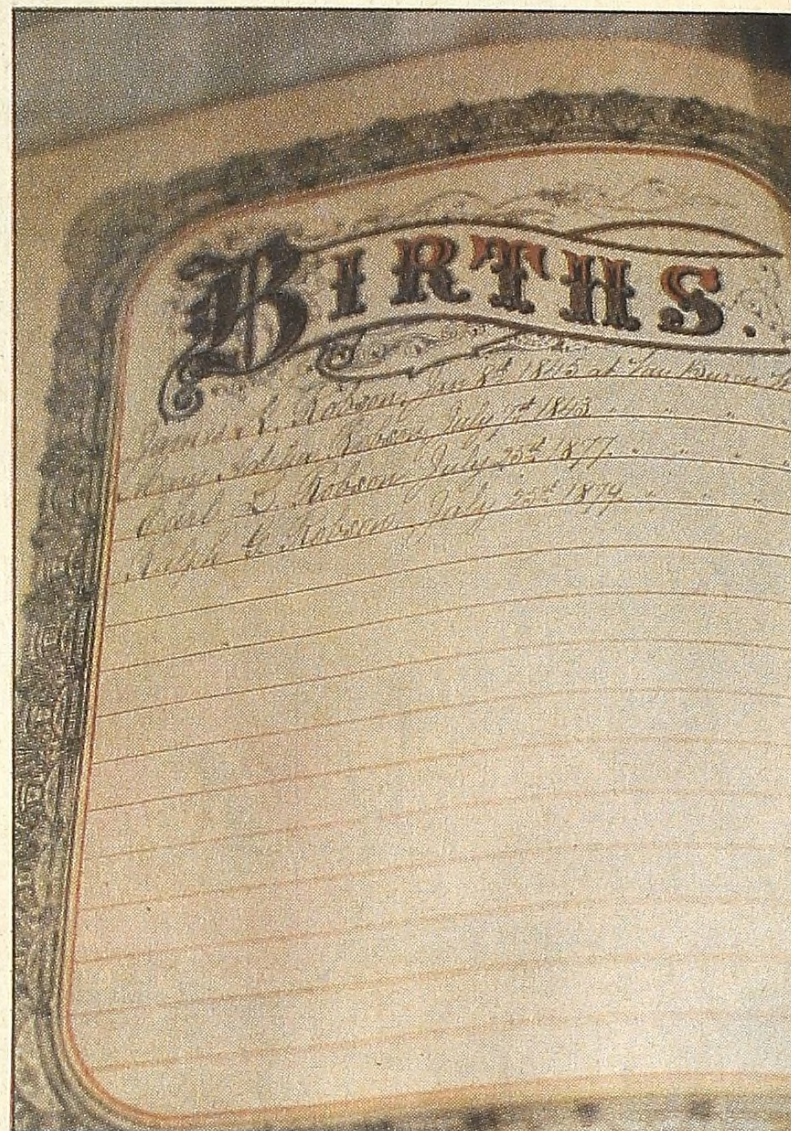 BIRTHS.
James A. Robson, Jan 8th 1845 at Van Buren
Adelia Robson, July 7th 1843 " " "
Carl D. Robson July 25th 1877. " " "
Ralph G Robson July 23d 1879. " " "